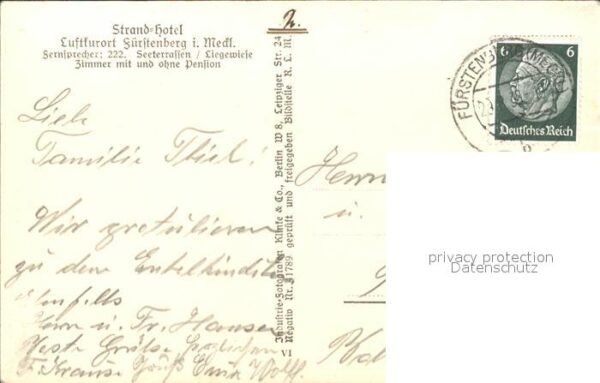 Strand-Hotel
Luftkurort Fürstenberg i. Meckl.
Fernsprecher: 222. Seeterrassen / Liegewiese
Zimmer mit und ohne Pension
Liebe
Familie Thiel!
Wir gratulieren
zu dem Enkelkindlein
ebenfalls
Herr u. Fr. Hansen
Beste Grüße
F. Krause Gruß Wolff.
Industrie-Fotografen Klinke & Co., Berlin W 8, Leipziger Str. 24
Negativ Nr. 41789 geprüft und freigegeben Bildstelle R. L. M.
VI
Herrn
u.
FÜRSTENBERG (MECKL)
6 6
Deutsches Reich
privacy protection
Datenschutz